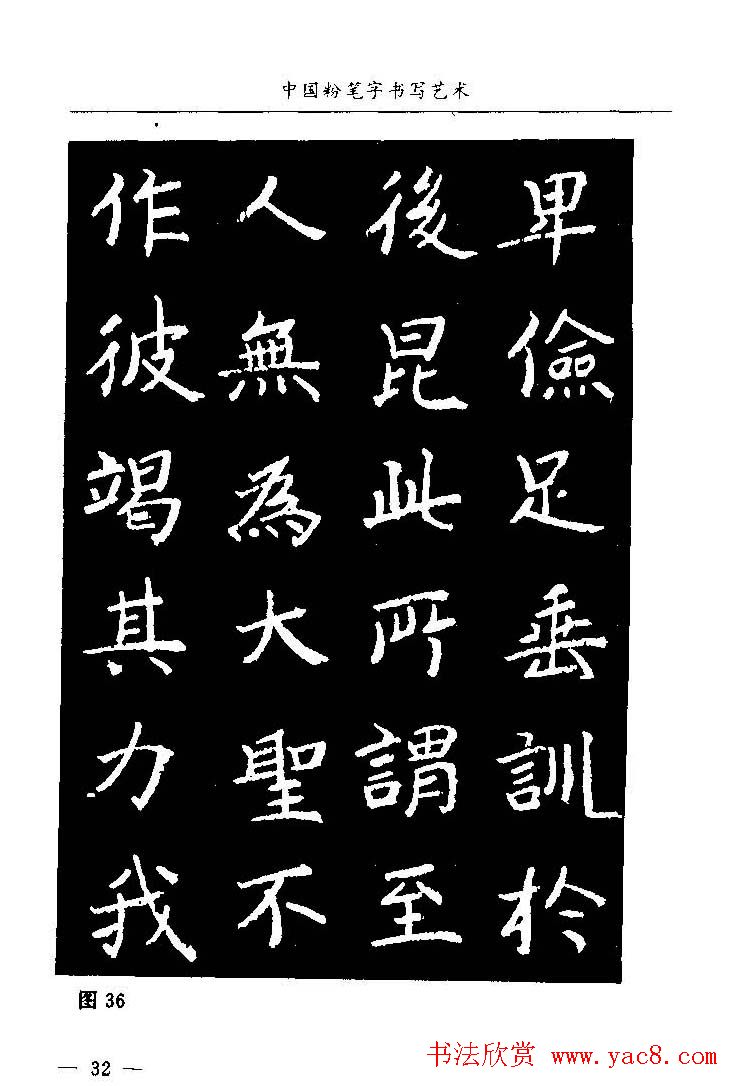 中国粉笔字书写艺术
卑儉足垂訓於
後昆此所謂至
人無為大聖不
作彼竭其力我
图 36
— 32 —
书法欣赏 www.yac8.com